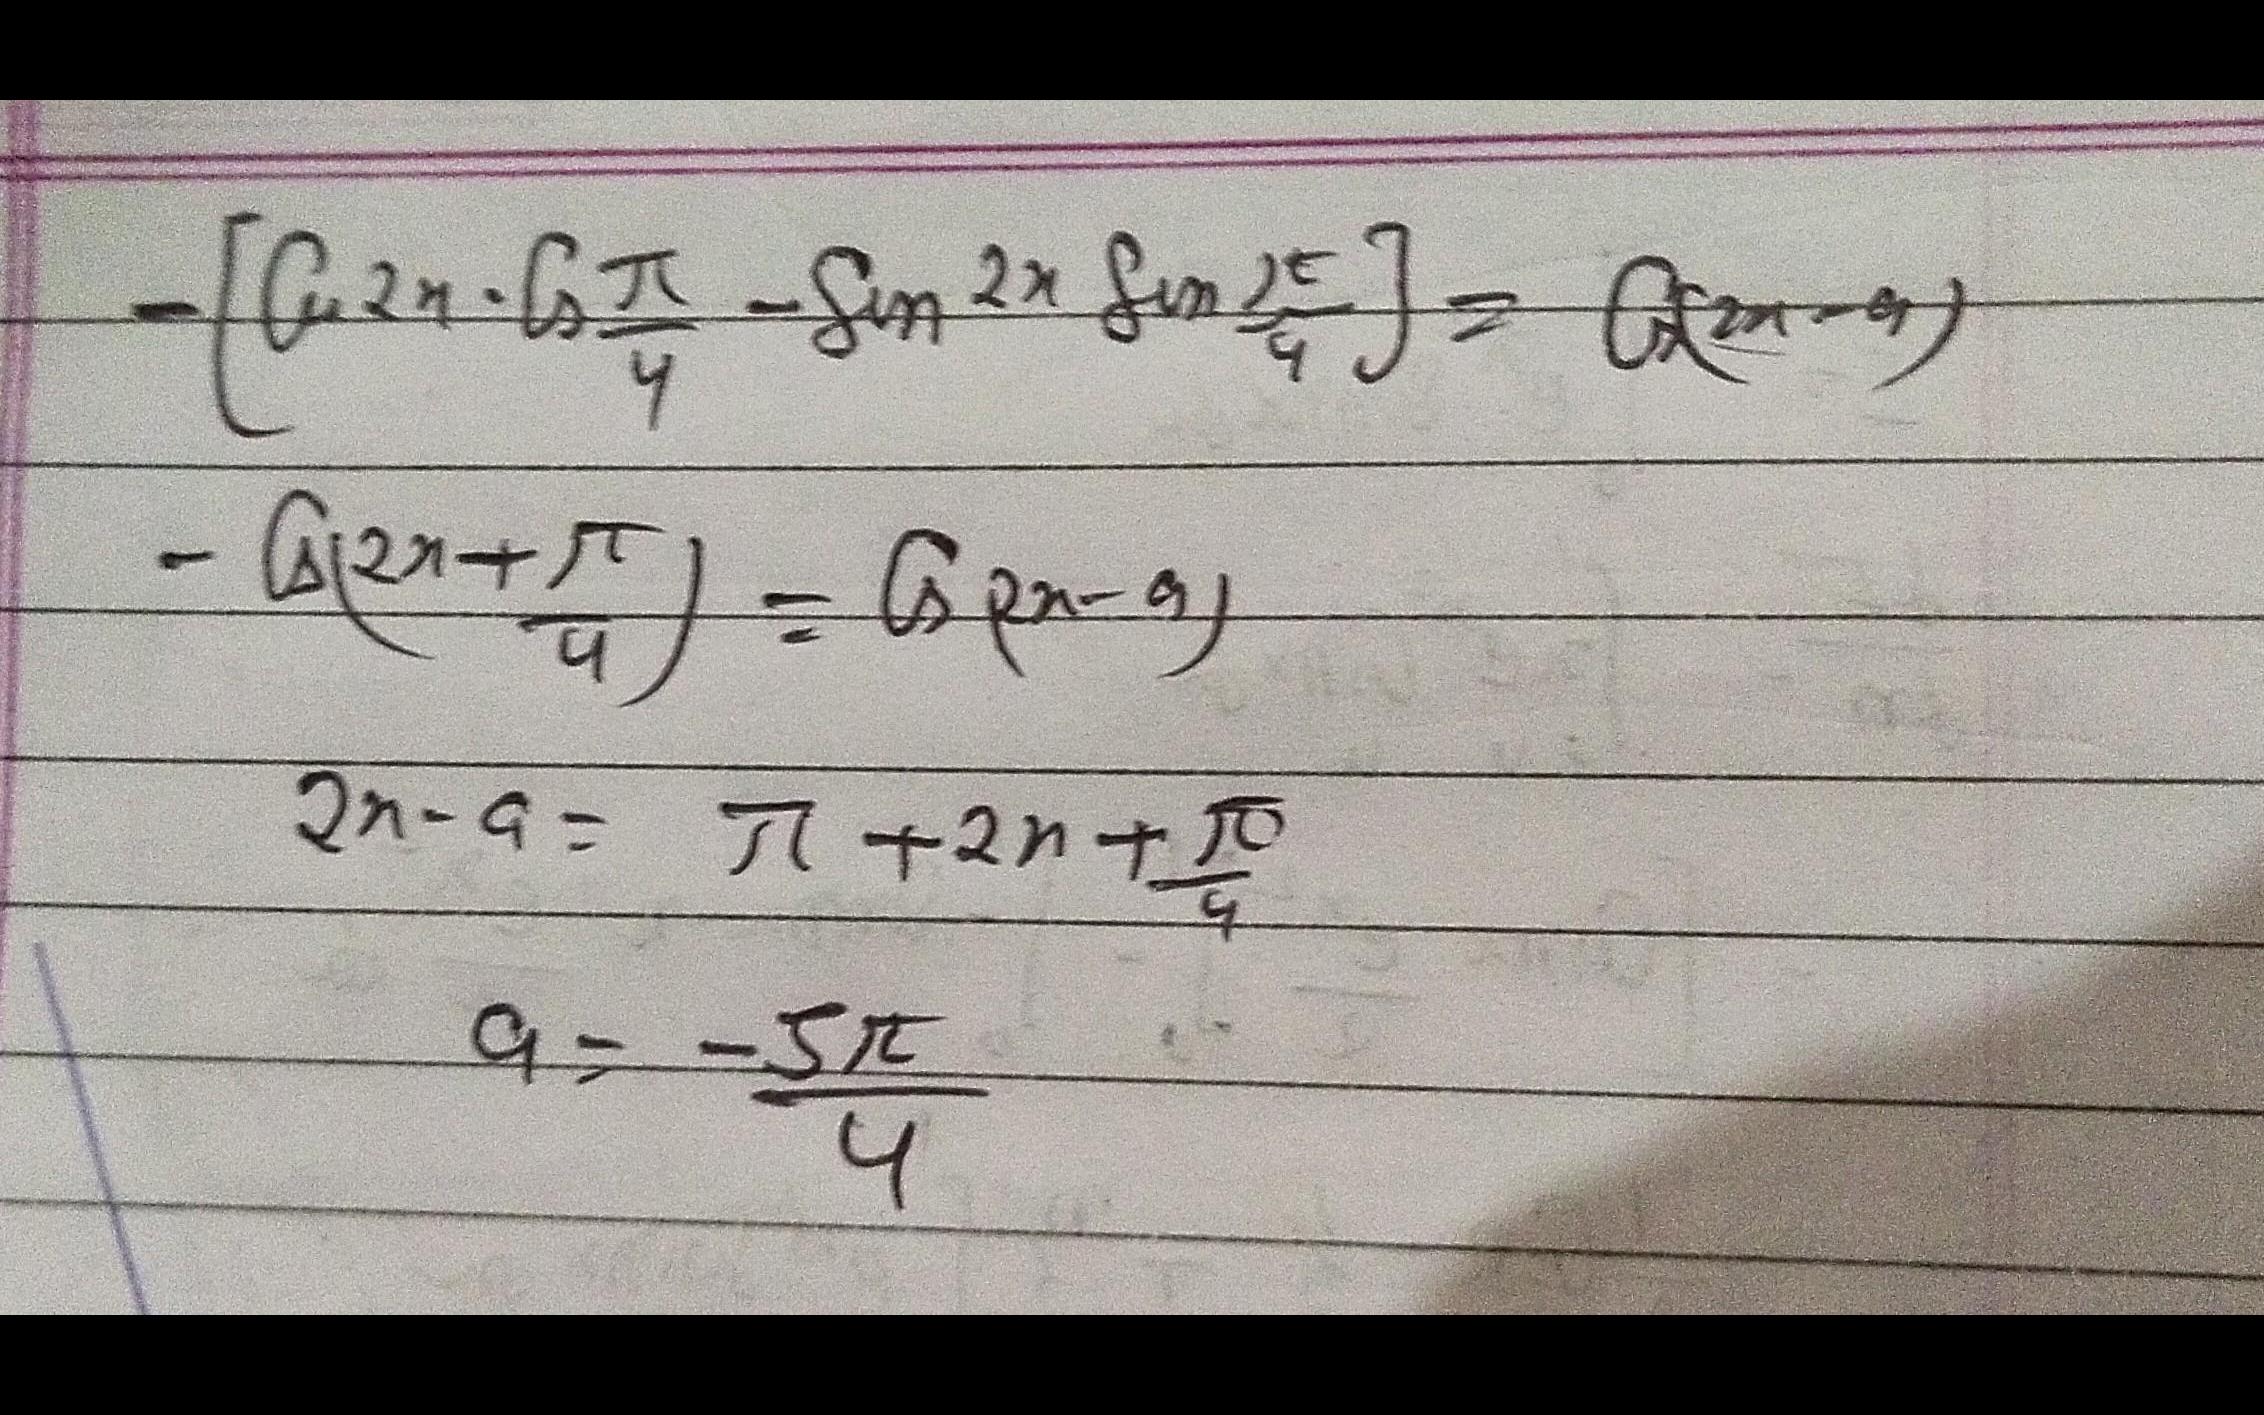 -[Cos 2x · Cos π/4 - Sin 2x Sin π/4] = Cos(2x - a)
- Cos(2x + π/4) = Cos(2x - a)
2x - a = π + 2x + π/4
a = -5π/4